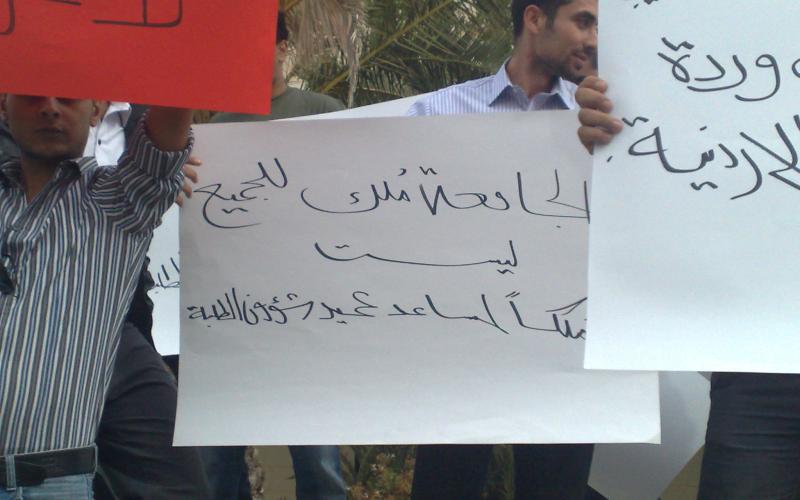 الجامعة مُلك للجميع
ليست
ملكاً لمساعد عميد شؤون الطلبة
وردة
الاردنية.